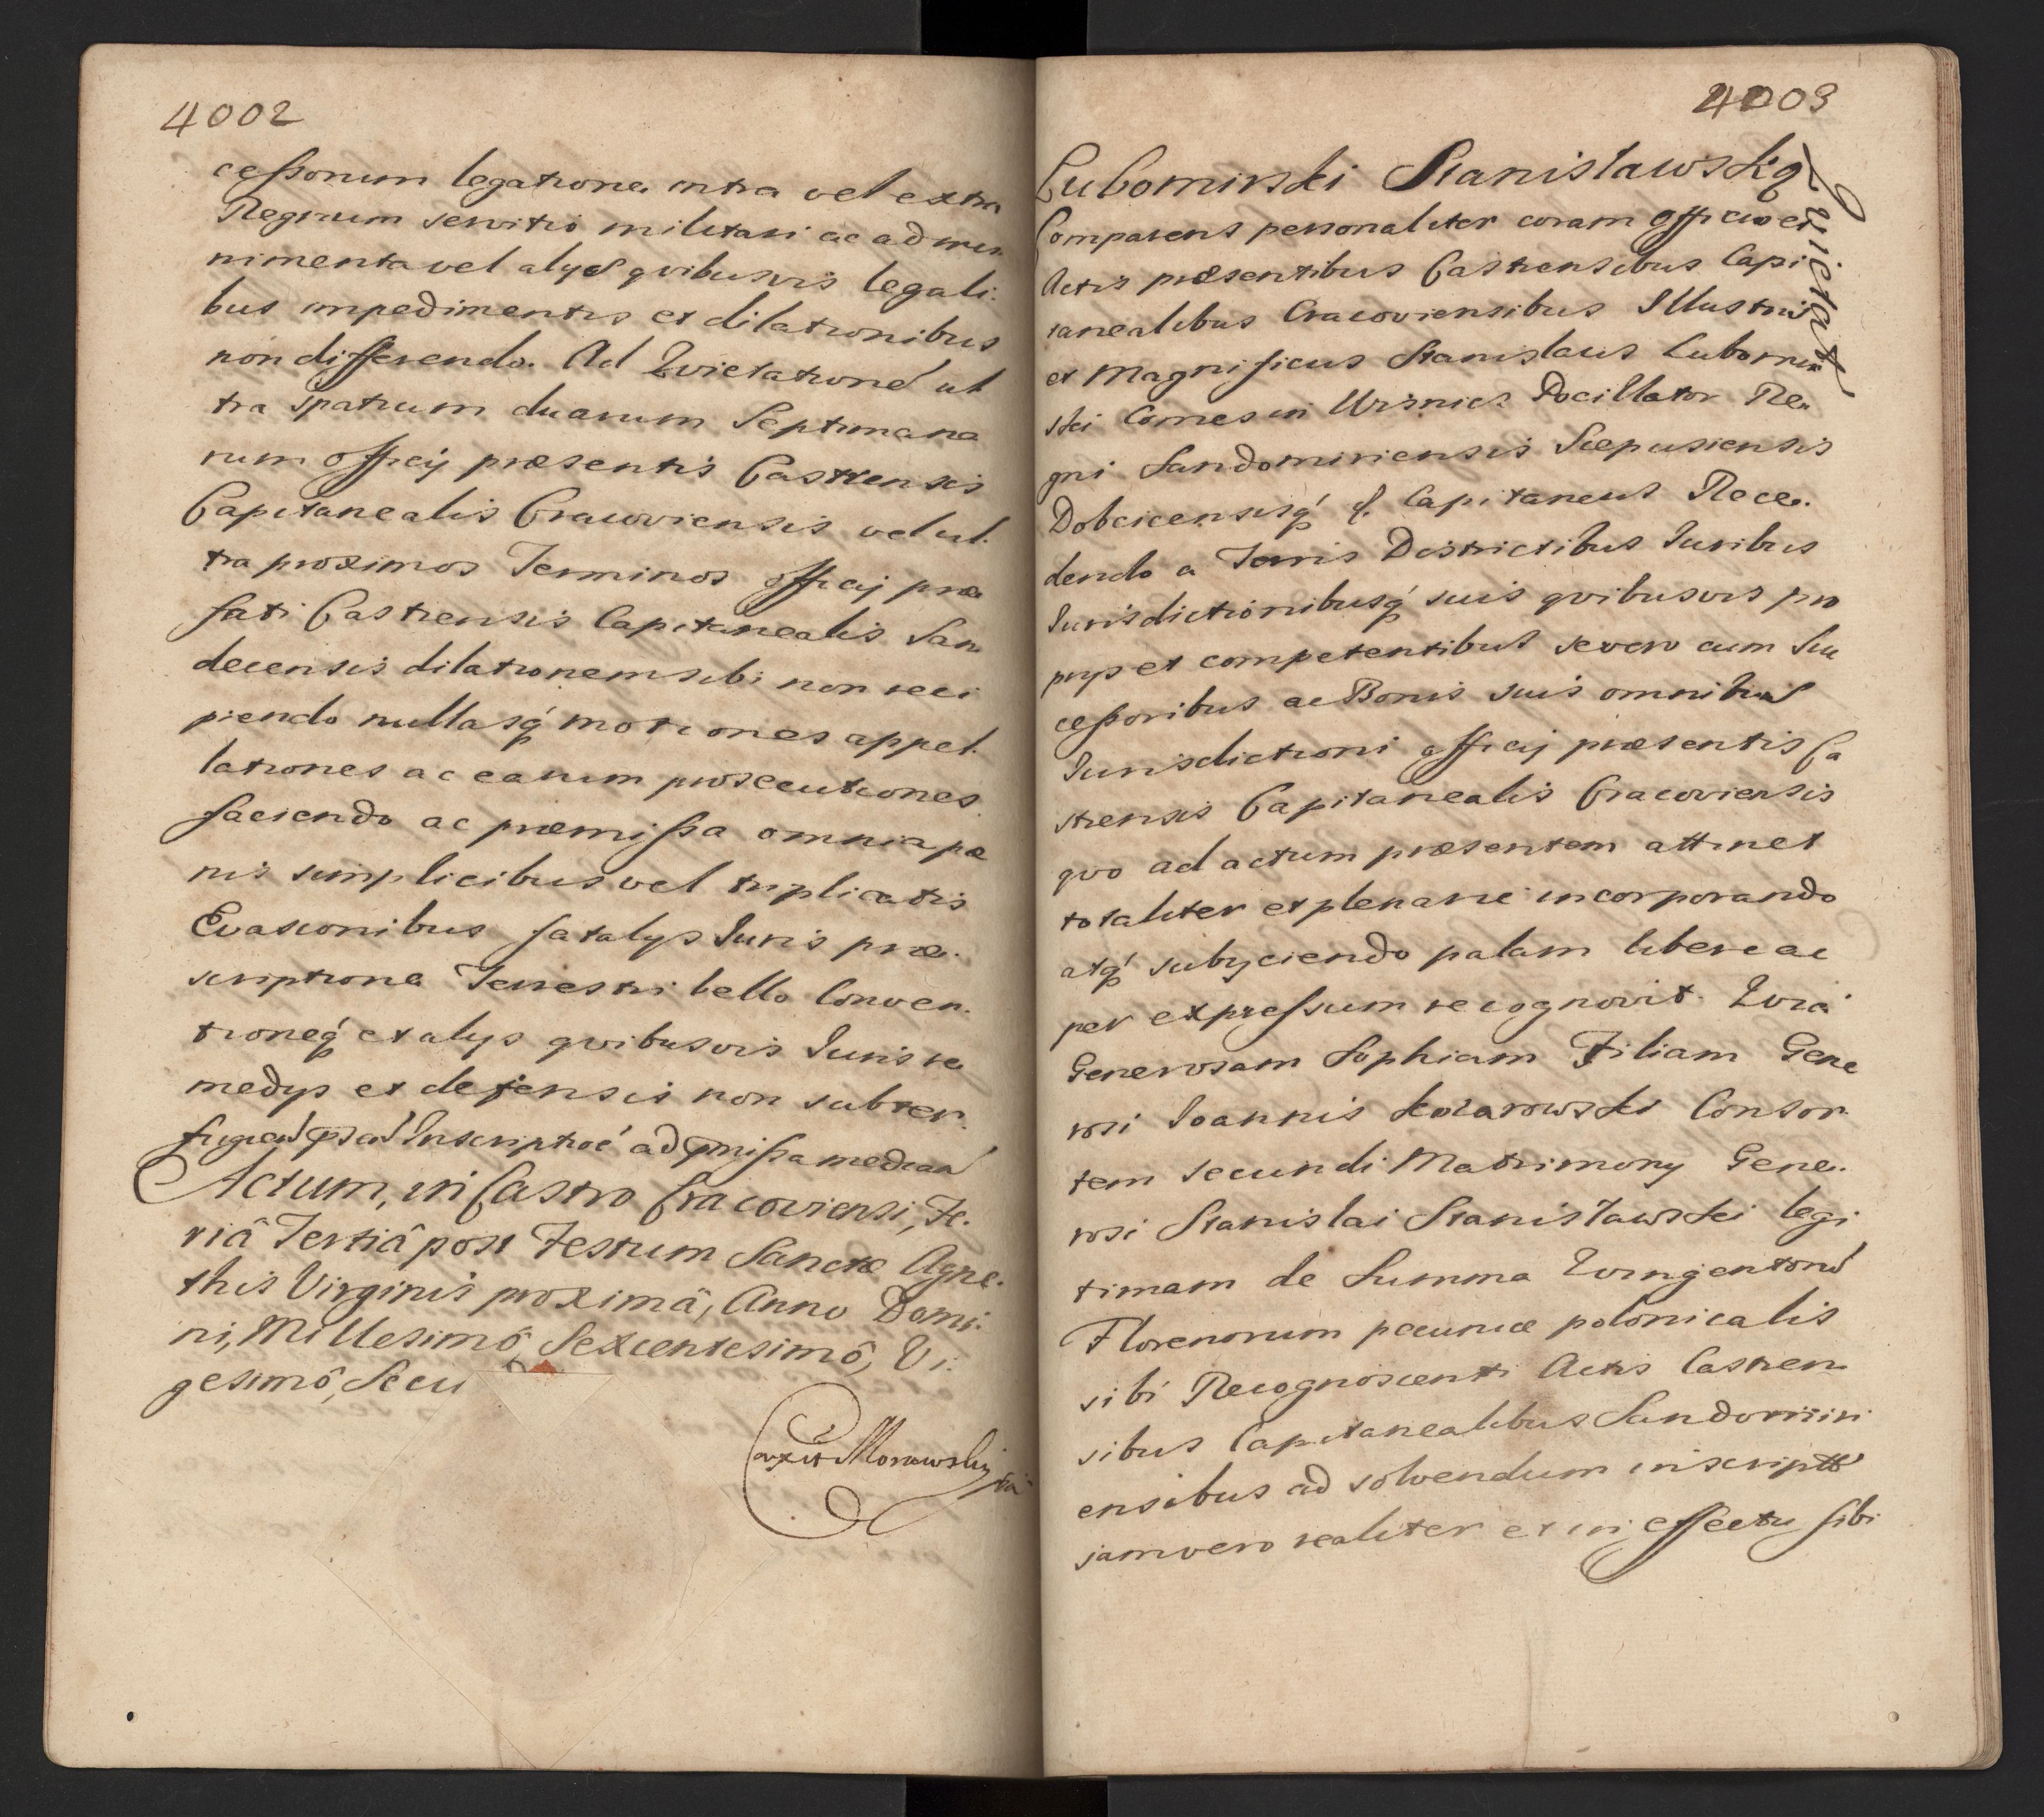 4002
ceßorum legatione intra vel extra
Regnum servitio militari ac ad mu
nimenta vel alys quibusvis legali:
bus impedimentis et dilationibus
non differendo. Ad Quietationé ul
tra spatium duarum Septimana
rum officy præsentis Castrensis
Capitanealis Cracoviensis vel ul.
tra proximos Terminos officy præ
fati Castrensis Capitanealis San
decensis dilationem sibi non reci
piendo nullasq́ motiones appel.
lationes ac earum prosecutiones
faciendo ac præmißa omnia pæ
nis simplicibus vel triplicatis
Evasionibus fatalys Iuris præ.
scriptione Terrestri bello Conven.
tioneq́ et alys quibusvis Iuris re
medys et defensis non subter.
Inscriptioé ad pmißa median
Actum, in Castro Cracoviensi, Fe.
riâ Tertiâ post Festum Sanctæ Agne.
this Virginis proximâ, Anno Domi.
ni, Millesimô, Sexcentesimô, Vi.
gesimô, Secu
Morawsky
4003
Lubomirski Stanisławskq
Quietat
Comparens personaliter coram officio et
Actis præsentibus Castrensibus Capi
tanealibus Cracoviensibus Illustris
et Magnificus Stanislaus Lubomir
ski Comes in Wisnicz Pocillator Re.
gni Sandomiriensis Scepusiensis
Dobcicensisq́ &. Capitaneus Rece.
dendo a Terris Districtibus Iuribus
Iurisdictionibusq́ suis quibusvis pro
prys et competentibus se vero cum Suc
ceßoribus ac Bonis suis omnibus
Iurisdictioni officy præsentis Ca
strensis Capitanealis Cracoviensis
quo ad actum præsentem attinet
totaliter et plenarie incorporando
atq́ subyciendo palam libere ac
per expressum recognovit. Quia
Generosam Sophiam Filiam Gene
rosi Ioannis Komarowski Consor
tem secundi Matrimony Gene.
rosi Stanislai Stanisławski legi
timam de Summa Quingentoru
Florenorum pecuniæ polonicalis
sibi Recognoscenti Actis Castren
sibus Capitanealibus Sandomiri
ensibus ad solvendum inscript
jamvero realiter et in effectu sibi